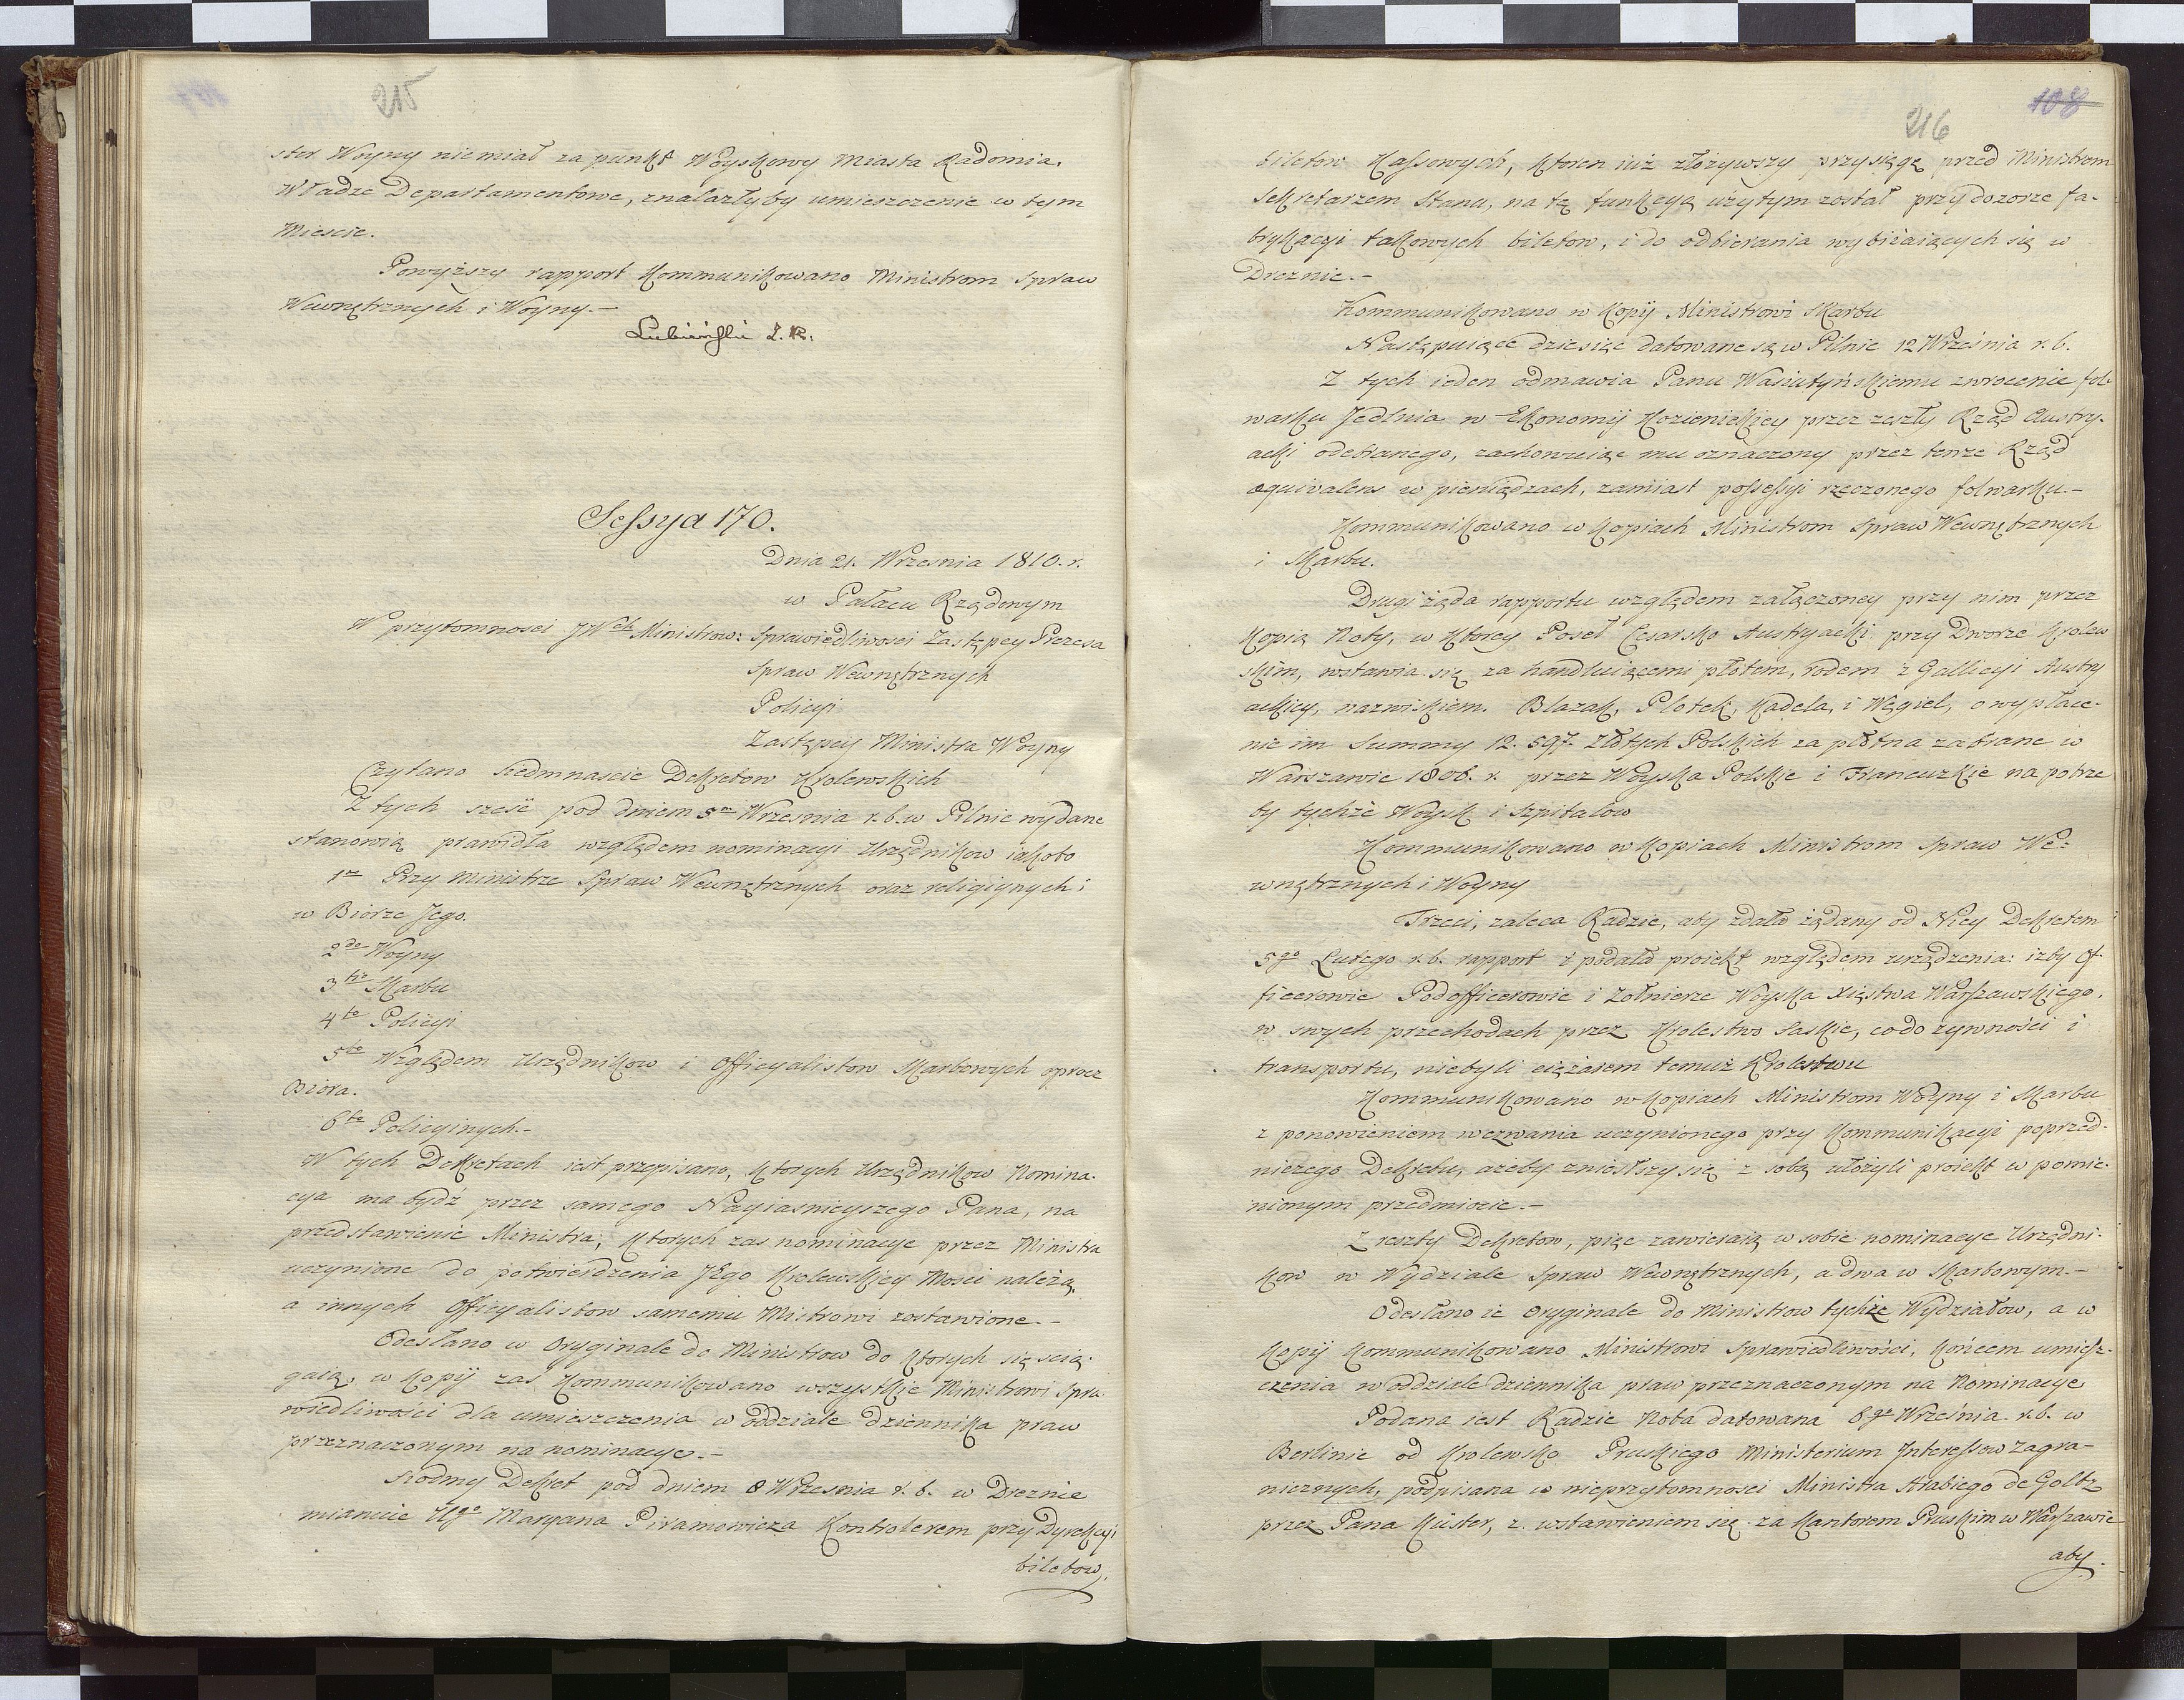 215
ster Woyny niemiał za punkt Woyskowy Miasta Radomia.
Władze Departamentowe, znalazłyby umieszczenie w tym
Miescie.
Powyższy rapport Kommunikowano Ministrom Spraw
Wewnętrznych i Woyny.–
Lubieński Z. R.
Sessya 170.
Dnia 21. Wrzesnia 1810. r.
w Pałacu Rządowym
W przytomnosci JWch Ministrow: Sprawiedliwosci Zastępcy Prezesa
Spraw Wewnętrznych
Policyi
Zastępcy Ministra Woyny
Czytano siedmnascie Dekretow Krolewskich
Z tych szesć pod dniem 5m Wrzesnia r.b. w Pilnie wydane
stanowią prawidła względem nominacyi Urzędnikow iakoto
1mo Przy Ministrze Spraw Wewnętrznych oraz religiynych i
w Biorze Jego.
2do Woyny
3tio Skarbu
4to Policyi
5to Względem Urzędnikow i Officyalistow Skarbowych oprocz
Biora.
6to Policyinych.–
W tych Dekretach iest przepisano, ktorych Urzędnikow Nomina-
cya ma bydź przez samego Nayiasnieyszego Pana, na
przedstawienie Ministra; ktorych zas nominacye przez Ministra
uczynione do potwierdzenia JEgo Krolewskiey Mosci należą,
a innych Officyalistow samemu Mistrowi zostawione.–
Odesłano w Oryginale do Ministrow do ktorych się scią-
gaią, w kopij zas Kommunikowano wszystkie Ministrowi Spra-
wiedliwości dla umieszczenia w oddziale dziennika praw
przeznaczonym na nominacye.–
Siodmy Dekret pod dniem 8 Wrzesnia r. b. w Dreznie
mianuie Ugo Maryana Piramowicza Kontrolerem przy Dyrekcyi
biletow,
108
216
biletow Kassowych, ktoren iuż złożywszy przysięgę przed Ministrem
Sekretarzem Stanu, na tę funkcyą użytym został przy dozorze fa-
brykacyi takowych biletow, i do odbierania wybiiaiących się w
Dreznie.–
Kommunikowano w kopij Ministrowi Skarbu
Następuiące dziesięć datowane są w Pilnie 12 Września r. b.
Z tych ieden odmawia Panu Wasiutyńskiemu zwrocenie fol-
warku Jedlnia w Ekonomij Kozienickiey przez zeszły Rząd Austry-
acki odebranego, zachowuiąc mu oznaczony przez tenże Rząd
æquivalens w pieniądzach, zamiast possessyi rzeczonego folwarku.–
Kommunikowano w kopiach Ministrom Spraw Wewnętrznych
i Skarbu.
Drugi żąda rapportu względem załączoney przy nim przez
kopią Noty, w ktorey Poseł Cesarsko Austryacki przy Dworze Krolew
skim, wstawia się za handluiącemi płotem, rodem z Gallicyi Austry
ackiey, nazwiskiem. Blazak, Plotek, Kadela, i Węgiel, o wypłace-
nie im Summy 12. 597. Złotych Polskich za płotna zabrane w
Warszawie 1806. r. przez Woyska Polskie i Francuzkie na potrze
by tychże Woysk i Szpitalow
Kommunikowano w kopiach Ministrom Spraw We-
wnętrznych i Woyny
Trzeci, zaleca Radzie, aby zdała żądany od Niey Dekretem
5go Lutego r. b. rapport i podała proiekt względem urządzenia: iżby Of-
ficerowie Podofficerowie i Żołnierze Woyska Xięstwa Warszawskiego,
w swych przechodach przez Krolestwo Saskie, co do żywności i
transportu, niebyli ciężarem temuż Krolestwu
Kommunikowano w kopiach Ministrom Woyny i Skarbu
z ponowieniem wezwania uczynionego przy Kommunikacyi poprzed-
niczego Dekretu, ażeby zniosłszy się z sobą ułożyli proiekt w pomie-
nionym przedmiocie.–
Z reszty Dekretow, pięć zawieraią w sobie nominacye Urzędni-
kow w Wydziale Spraw Wewnętrznych, a dwa w Skarbowym.–
Odesłano ie Oryginale do Ministrow tychże Wydziałow, a w
kopij Kommunikowano Ministrowi Sprawiedliwości, końcem umiesz-
czenia w oddziale dziennika praw przeznaczonym na Nominacye
Podana iest Radzie Nota datowana 8go Września r.b. w
Berlinie od Krolewsko Pruskiego Ministerium Interessow Zagra-
nicznych, podpisana w nieprzytomnosci Ministra Hrabiego de Goltz
przez Pana Küster, z wstawieniem się za Kantorem Pruskim w Warszawie
aby.